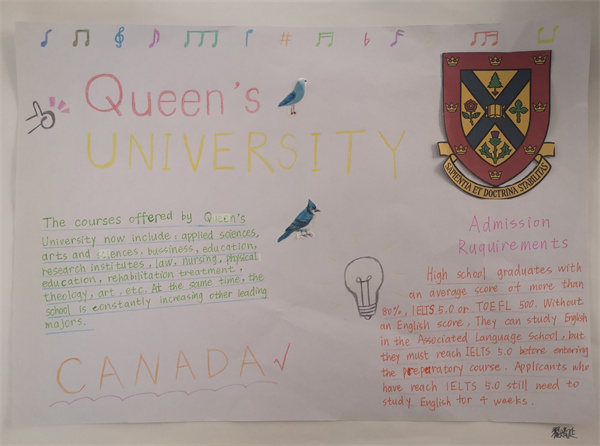 Queen's
UNIVERSITY
SAPIENTIA ET DOCTRINA STABILITAS
The courses offered by Queen's
University now include: applied sciences,
arts and sciences, bussiness, education,
research institutes, law, nursing, physical
education, rehabilitation treatment,
theology, art, etc. At the same time, the
school is constantly increasing other leading
majors.
CANADA
Admission
Raquirements
High school graduates with
an average score of more than
80%, IELTS 5.0 or TOEFL 500. Without
an English score, They can study English
in the Associated Language School, but
they must reach IELTS 5.0 before entering
the preparatory course. Applicants who
have reach IELTS 5.0 still need to
study English for 4 weeks.